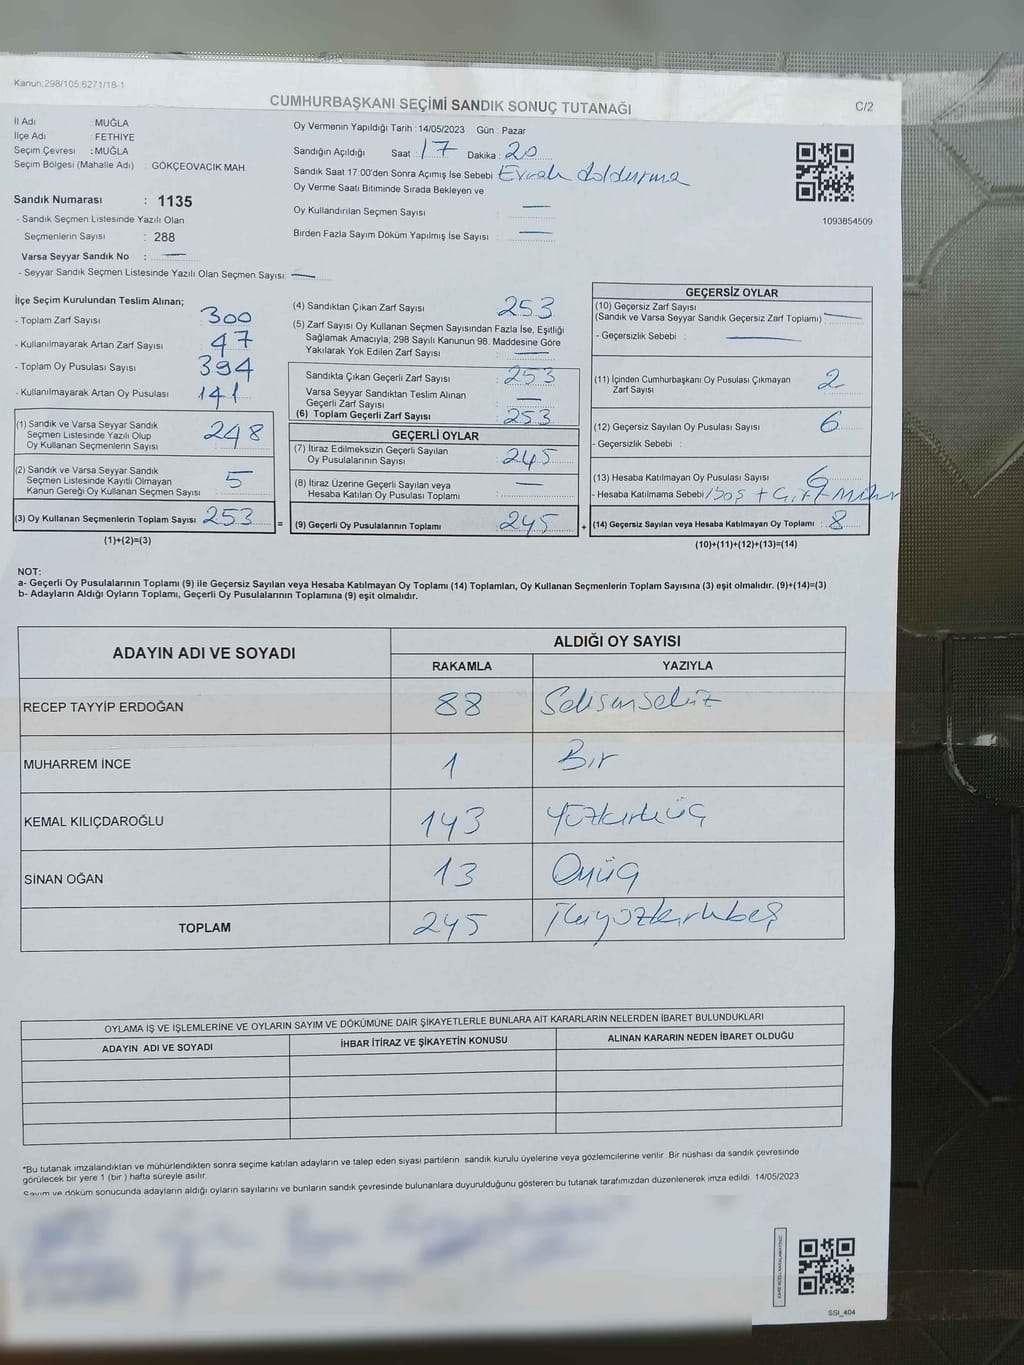 Kanun;298/105;6271/18-1
CUMHURBAŞKANI SEÇİMİ SANDIK SONUÇ TUTANAĞI
C/2
İl Adı : MUĞLA
İlçe Adı : FETHİYE
Seçim Çevresi : MUĞLA
Seçim Bölgesi (Mahalle Adı) : GÖKÇEOVACIK MAH.
Sandık Numarası : 1135
- Sandık Seçmen Listesinde Yazılı Olan
Seçmenlerin Sayısı : 288
Varsa Seyyar Sandık No : —
- Seyyar Sandık Seçmen Listesinde Yazılı Olan Seçmen Sayısı: —
Oy Vermenin Yapıldığı Tarih : 14/05/2023 Gün : Pazar
Sandığın Açıldığı Saat : 17 Dakika : 20
Sandık Saat 17:00'den Sonra Açımış İse Sebebi Evrak doldurma
Oy Verme Saati Bitiminde Sırada Bekleyen ve
Oy Kullandırılan Seçmen Sayısı : —
Birden Fazla Sayım Döküm Yapılmış İse Sayısı : —
1093854509
İlçe Seçim Kurulundan Teslim Alınan;
- Toplam Zarf Sayısı : 300
- Kullanılmayarak Artan Zarf Sayısı : 47
- Toplam Oy Pusulası Sayısı : 394
- Kullanılmayarak Artan Oy Pusulası : 141
(1) Sandık ve Varsa Seyyar Sandık
Seçmen Listesinde Yazılı Olup
Oy Kullanan Seçmenlerin Sayısı : 248
(2) Sandık ve Varsa Seyyar Sandık
Seçmen Listesinde Kayıtlı Olmayan
Kanun Gereği Oy Kullanan Seçmen Sayısı : 5
(3) Oy Kullanan Seçmenlerin Toplam Sayısı : 253 =
(1)+(2)=(3)
(4) Sandıktan Çıkan Zarf Sayısı : 253
(5) Zarf Sayısı Oy Kullanan Seçmen Sayısından Fazla İse, Eşitliği
Sağlamak Amacıyla; 298 Sayılı Kanunun 98. Maddesine Göre
Yakılarak Yok Edilen Zarf Sayısı : —
Sandıkta Çıkan Geçerli Zarf Sayısı : 253
Varsa Seyyar Sandıktan Teslim Alınan
Geçerli Zarf Sayısı : —
(6) Toplam Geçerli Zarf Sayısı : 253
GEÇERLİ OYLAR
(7) İtiraz Edilmeksizin Geçerli Sayılan
Oy Pusulalarının Sayısı : 245
(8) İtiraz Üzerine Geçerli Sayılan veya
Hesaba Katılan Oy Pusulası Toplamı : —
(9) Geçerli Oy Pusulalarının Toplamı : 245 +
GEÇERSİZ OYLAR
(10) Geçersiz Zarf Sayısı
(Sandık ve Varsa Seyyar Sandık Geçersiz Zarf Toplamı) : —
- Geçersizlik Sebebi : —
(11) İçinden Cumhurbaşkanı Oy Pusulası Çıkmayan
Zarf Sayısı : 2
(12) Geçersiz Sayılan Oy Pusulası Sayısı : 6
- Geçersizlik Sebebi :
(13) Hesaba Katılmayan Oy Pusulası Sayısı : 6
- Hesaba Katılmama Sebebi : Boş + Çift Mühr
(14) Geçersiz Sayılan veya Hesaba Katılmayan Oy Toplamı : 8
(10)+(11)+(12)+(13)=(14)
NOT:
a- Geçerli Oy Pusulalarının Toplamı (9) ile Geçersiz Sayılan veya Hesaba Katılmayan Oy Toplamı (14) Toplamları, Oy Kullanan Seçmenlerin Toplam Sayısına (3) eşit olmalıdır. (9)+(14)=(3)
b- Adayların Aldığı Oyların Toplamı, Geçerli Oy Pusulalarının Toplamına (9) eşit olmalıdır.
ADAYIN ADI VE SOYADI
ALDIĞI OY SAYISI
RAKAMLA YAZIYLA
RECEP TAYYİP ERDOĞAN 88 Seksensekiz
MUHARREM İNCE 1 Bir
KEMAL KILIÇDAROĞLU 143 Yüzkırküç
SİNAN OĞAN 13 Onüç
TOPLAM 245 İkiyüzkırkbeş
OYLAMA İŞ VE İŞLEMLERİNE VE OYLARIN SAYIM VE DÖKÜMÜNE DAİR ŞİKAYETLERLE BUNLARA AİT KARARLARIN NELERDEN İBARET BULUNDUKLARI
ADAYIN ADI VE SOYADI İHBAR İTİRAZ VE ŞİKAYETİN KONUSU ALINAN KARARIN NEDEN İBARET OLDUĞU
*Bu tutanak imzalandıktan ve mühürlendikten sonra seçime katılan adayların ve talep eden siyasi partilerin sandık kurulu üyelerine veya gözlemcilerine verilir. Bir nüshası da sandık çevresinde
görülecek bir yere 1 (bir ) hafta süreyle asılır.
Sayım ve döküm sonucunda adayların aldığı oyların sayılarını ve bunların sandık çevresinde bulunanlara duyurulduğunu gösteren bu tutanak tarafımızdan düzenlenerek imza edildi. 14/05/2023
SSİ_404